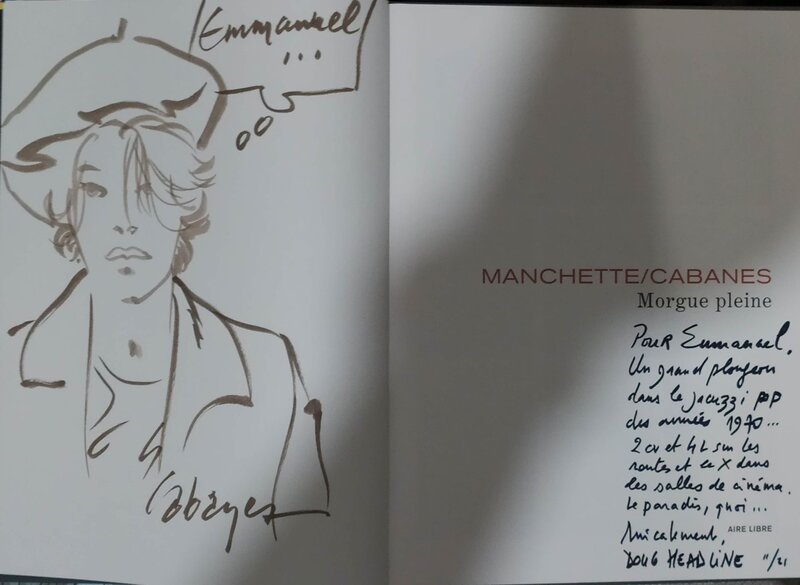 Emmanuel
...
Cabanes
MANCHETTE/CABANES
Morgue pleine
Pour Emmanuel.
Un grand plongeon
dans le jacuzzi pop
des années 1970...
2 cv et 4L sur les
routes et le X dans
les salles de cinéma.
Le paradis, quoi...
Amicalement,
AIRE LIBRE
DOUG HEADLINE 11/21